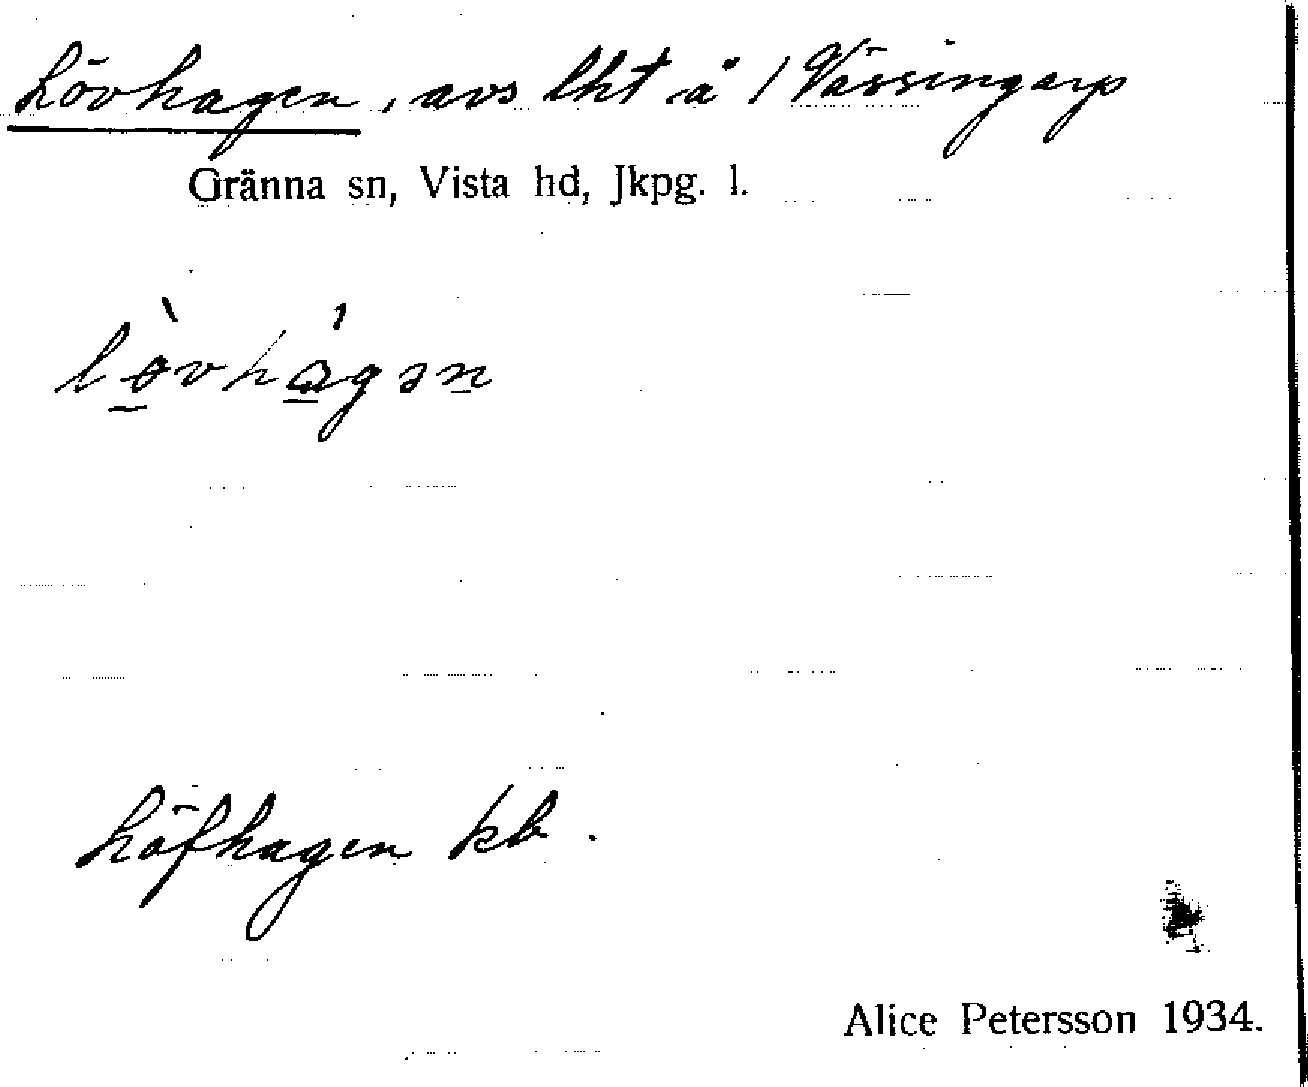 Lövhagen, avs lht å 1 Vässingarp
Gränna sn, Vista hd, Jkpg. l.
lövhagən
Löfhagen kb.
Alice Petersson 1934.